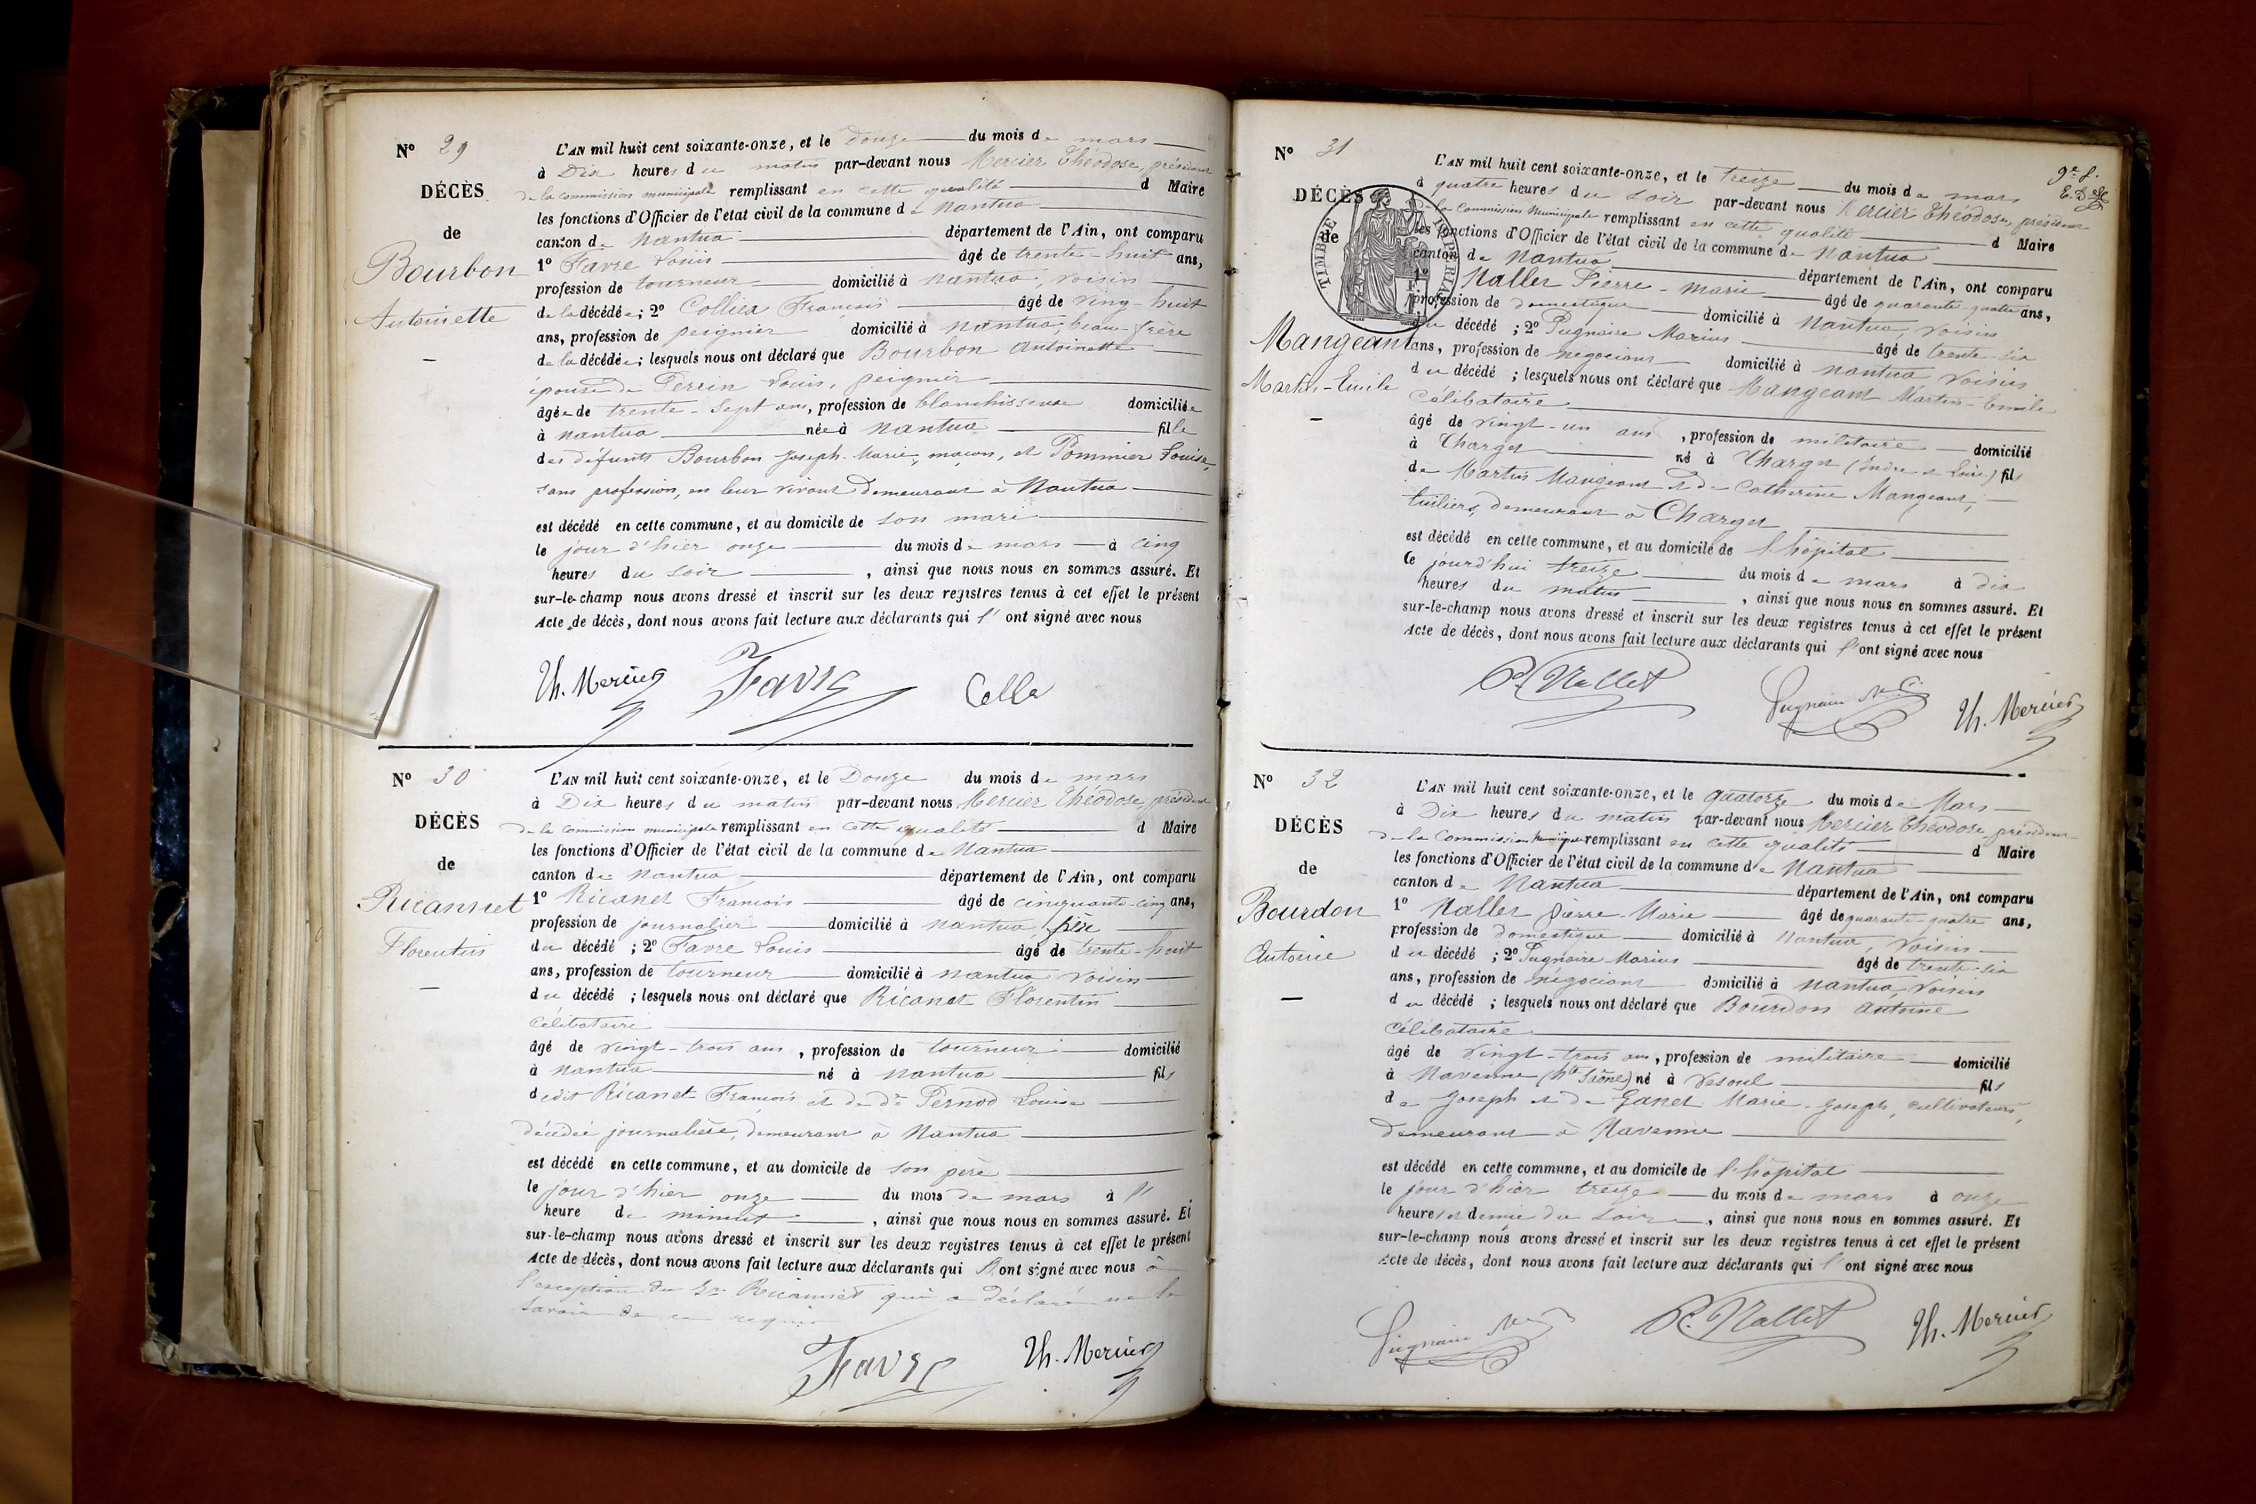 N° 29
DÉCÈS
de
Bourbon
Antoinette
L'AN mil huit cent soixante-onze, et le Douze du mois de mars
à Dix heures du matin par-devant nous Mercier Théodose, président
de la commission municipale remplissant en cette qualité d Maire
les fonctions d'Officier de l'état civil de la commune de Nantua
canton de Nantua département de l'Ain, ont comparu
1° Favre Louis âgé de trente-huit ans,
profession de tourneur domicilié à Nantua, voisin
de la décédée; 2° Collier François âgé de ving-huit
ans, profession de peignier domicilié à Nantua, beau-frère
de la décédée; lesquels nous ont déclaré que Bourbon Antoinette
épouse de Perrin Louis, peignier
âgée de trente-sept ans, profession de blanchisseuse domiciliée
à Nantua née à Nantua fille
des défunts Bourbon Joseph-Marie, maçon, et Pommier Louise,
sans profession, en leur vivant demeurant à Nantua
est décédé en cette commune, et au domicile de son mari
le jour d'hier onze du mois de mars à cinq
heures du soir, ainsi que nous nous en sommes assuré. Et
sur-le-champ nous avons dressé et inscrit sur les deux registres tenus à cet effet le présent
Acte de décès, dont nous avons fait lecture aux déclarants qui l'ont signé avec nous
Th. Mercier Favre Colle
N° 30
DÉCÈS
de
Ricannet
Florentin
L'AN mil huit cent soixante-onze, et le Douze du mois de mars
à Dix heures du matin par-devant nous Mercier Théodose, président
de la commission municipale remplissant en cette qualité d Maire
les fonctions d'Officier de l'état civil de la commune de Nantua
canton de Nantua département de l'Ain, ont comparu
1° Ricanet François âgé de cinquante-cinq ans,
profession de journalier domicilié à Nantua, père
du décédé; 2° Favre Louis âgé de trente-huit
ans, profession de tourneur domicilié à Nantua voisin
du décédé; lesquels nous ont déclaré que Ricanet Florentin
célibataire
âgé de vingt-trois ans, profession de tourneur domicilié
à Nantua né à Nantua fils
dedit Ricanet François et de de Pernod Louise
décédée journalière, demeurant à Nantua
est décédé en cette commune, et au domicile de son père
le jour d'hier onze du mois de mars à l'
heure de minuit, ainsi que nous nous en sommes assuré. Et
sur-le-champ nous avons dressé et inscrit sur les deux registres tenus à cet effet le présent
Acte de décès, dont nous avons fait lecture aux déclarants qui l'ont signé avec nous à
l'exception du Sr. Ricannet qui a déclaré ne le
savoir de ce requis
Favre Th. Mercier
N° 31
DÉCÈS
de
TIMBRE IMPÉRIAL
Mangeant
Martin-Emile
L'AN mil huit cent soixante-onze, et le treize du mois de mars
à quatre heures du soir par-devant nous Mercier Théodose, président
de la Commission Municipale remplissant en cette qualité d Maire
les fonctions d'Officier de l'état civil de la commune de Nantua
canton de Nantua département de l'Ain, ont comparu
1° Nallet Pierre-Marie âgé de quarante-quatre ans,
profession de domestique domicilié à Nantua, voisin
du décédé; 2° Pugnaire Marius âgé de trente-six
ans, profession de négociant domicilié à Nantua voisin
du décédé; lesquels nous ont déclaré que Mangeant Martin-Emile
célibataire
âgé de vingt-un ans, profession de militaire domicilié
à Charget né à Charget (Indre et Loire) fils
de Martin Mangeant et de Catherine Mangeant,
tuiliers, demeurant à Charget
est décédé en cette commune, et au domicile de l'hôpital
le jourd'hui treize du mois de mars à dix
heures du matin, ainsi que nous nous en sommes assuré. Et
sur-le-champ nous avons dressé et inscrit sur les deux registres tenus à cet effet le présent
Acte de décès, dont nous avons fait lecture aux déclarants qui l'ont signé avec nous
P. Nallet Pugnaire Th. Mercier
N° 32
DÉCÈS
de
Bourdon
Antoine
L'AN mil huit cent soixante-onze, et le quatorze du mois de Mars
à Dix heures du matin par-devant nous Mercier Théodose, président
de la Commission Municipale remplissant en cette qualité d Maire
les fonctions d'Officier de l'état civil de la commune de Nantua
canton de Nantua département de l'Ain, ont comparu
1° Nallet Pierre-Marie âgé de quarante-quatre ans,
profession de domestique domicilié à Nantua, voisin
du décédé; 2° Pugnaire Marius âgé de trente-six
ans, profession de négociant domicilié à Nantua, voisin
du décédé; lesquels nous ont déclaré que Bourdon Antoine
célibataire
âgé de vingt-trois ans, profession de militaire domicilié
à Navenne (hte Saône) né à Vesoul fils
de Joseph et de Ganet Marie-Joseph, cultivateurs,
demeurant à Navenne
est décédé en cette commune, et au domicile de l'hôpital
le jour d'hier treize du mois de mars à onze
heures et demie du soir, ainsi que nous nous en sommes assuré. Et
sur-le-champ nous avons dressé et inscrit sur les deux registres tenus à cet effet le présent
Acte de décès, dont nous avons fait lecture aux déclarants qui l'ont signé avec nous
Pugnaire P. Nallet Th. Mercier